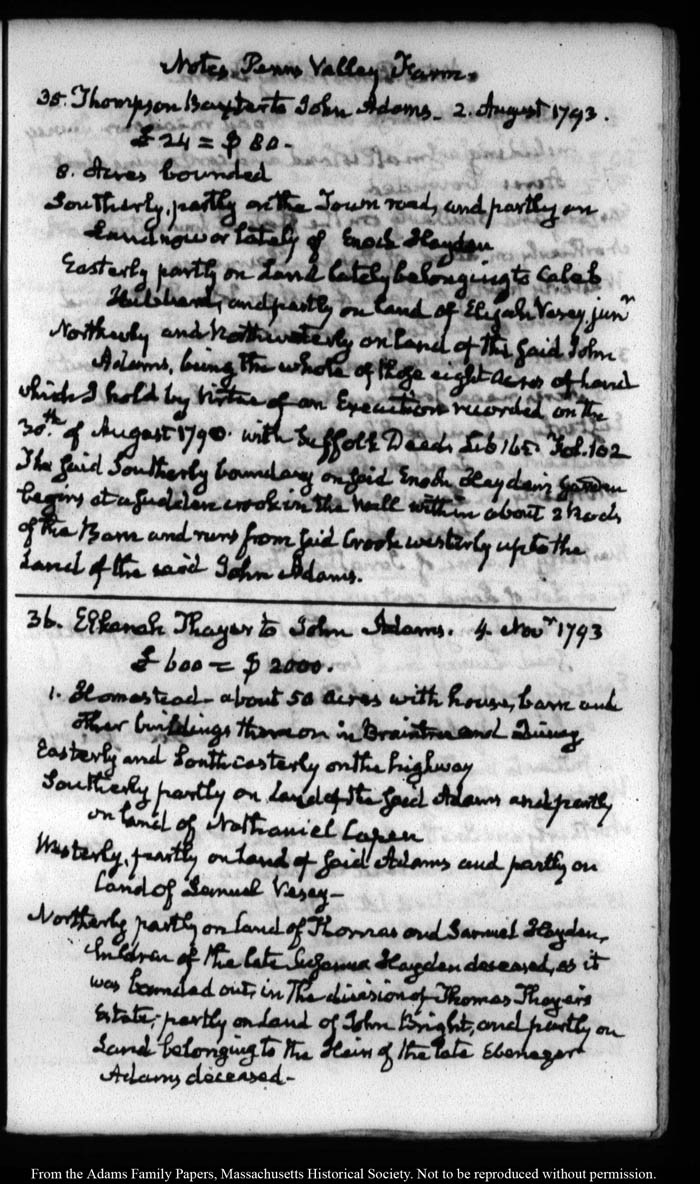 Notes, Penns Valley Farm.
35. Thompson Baxter to John Adams. 2. August 1793.
£ 24 = $ 80.
8. Acres bounded
Southerly, partly on the Town road, and partly on
Land now or lately of Enoch Hayden
Easterly partly on Land lately belonging to Caleb
Hubbard, and partly on land of Elijah Vesey junr
Northerly and Northwesterly on land of the said John
Adams, being the whole of those eight Acres of Land
which I hold by virtue of an Execution recorded on the
30.th of August 1790. with Suffolk Deeds Lib 165. Fol. 102
The said Southerly boundary on said Enoch Hayden's
begins at a sudden crook in the Wall within about 2 Rods
of the Barn and runs from said Crook westerly up to the
Land of the said John Adams.
36. Elkanah Thayer to John Adams. 4. Novr 1793
£ 600 = $ 2000.
1. Homestead - about 50 acres with house, barn and
other buildings thereon in Braintree and Quincy
Easterly and Southeasterly on the highway
Southerly partly on Land of the said Adams and partly
on land of Nathaniel Capen
Westerly, partly on Land of said Adams and partly on
Land of Lemuel Vesey -
Northerly partly on land of Thomas and Samuel Hayden,
Children of the late Susanna Hayden deceased, as it
was bounded out, in The division of Thomas Thayers
Estate; partly on Land of John Bright, and partly on
Land belonging to the Heirs of the late Ebenezer
Adams deceased -
From the Adams Family Papers, Massachusetts Historical Society. Not to be reproduced without permission.